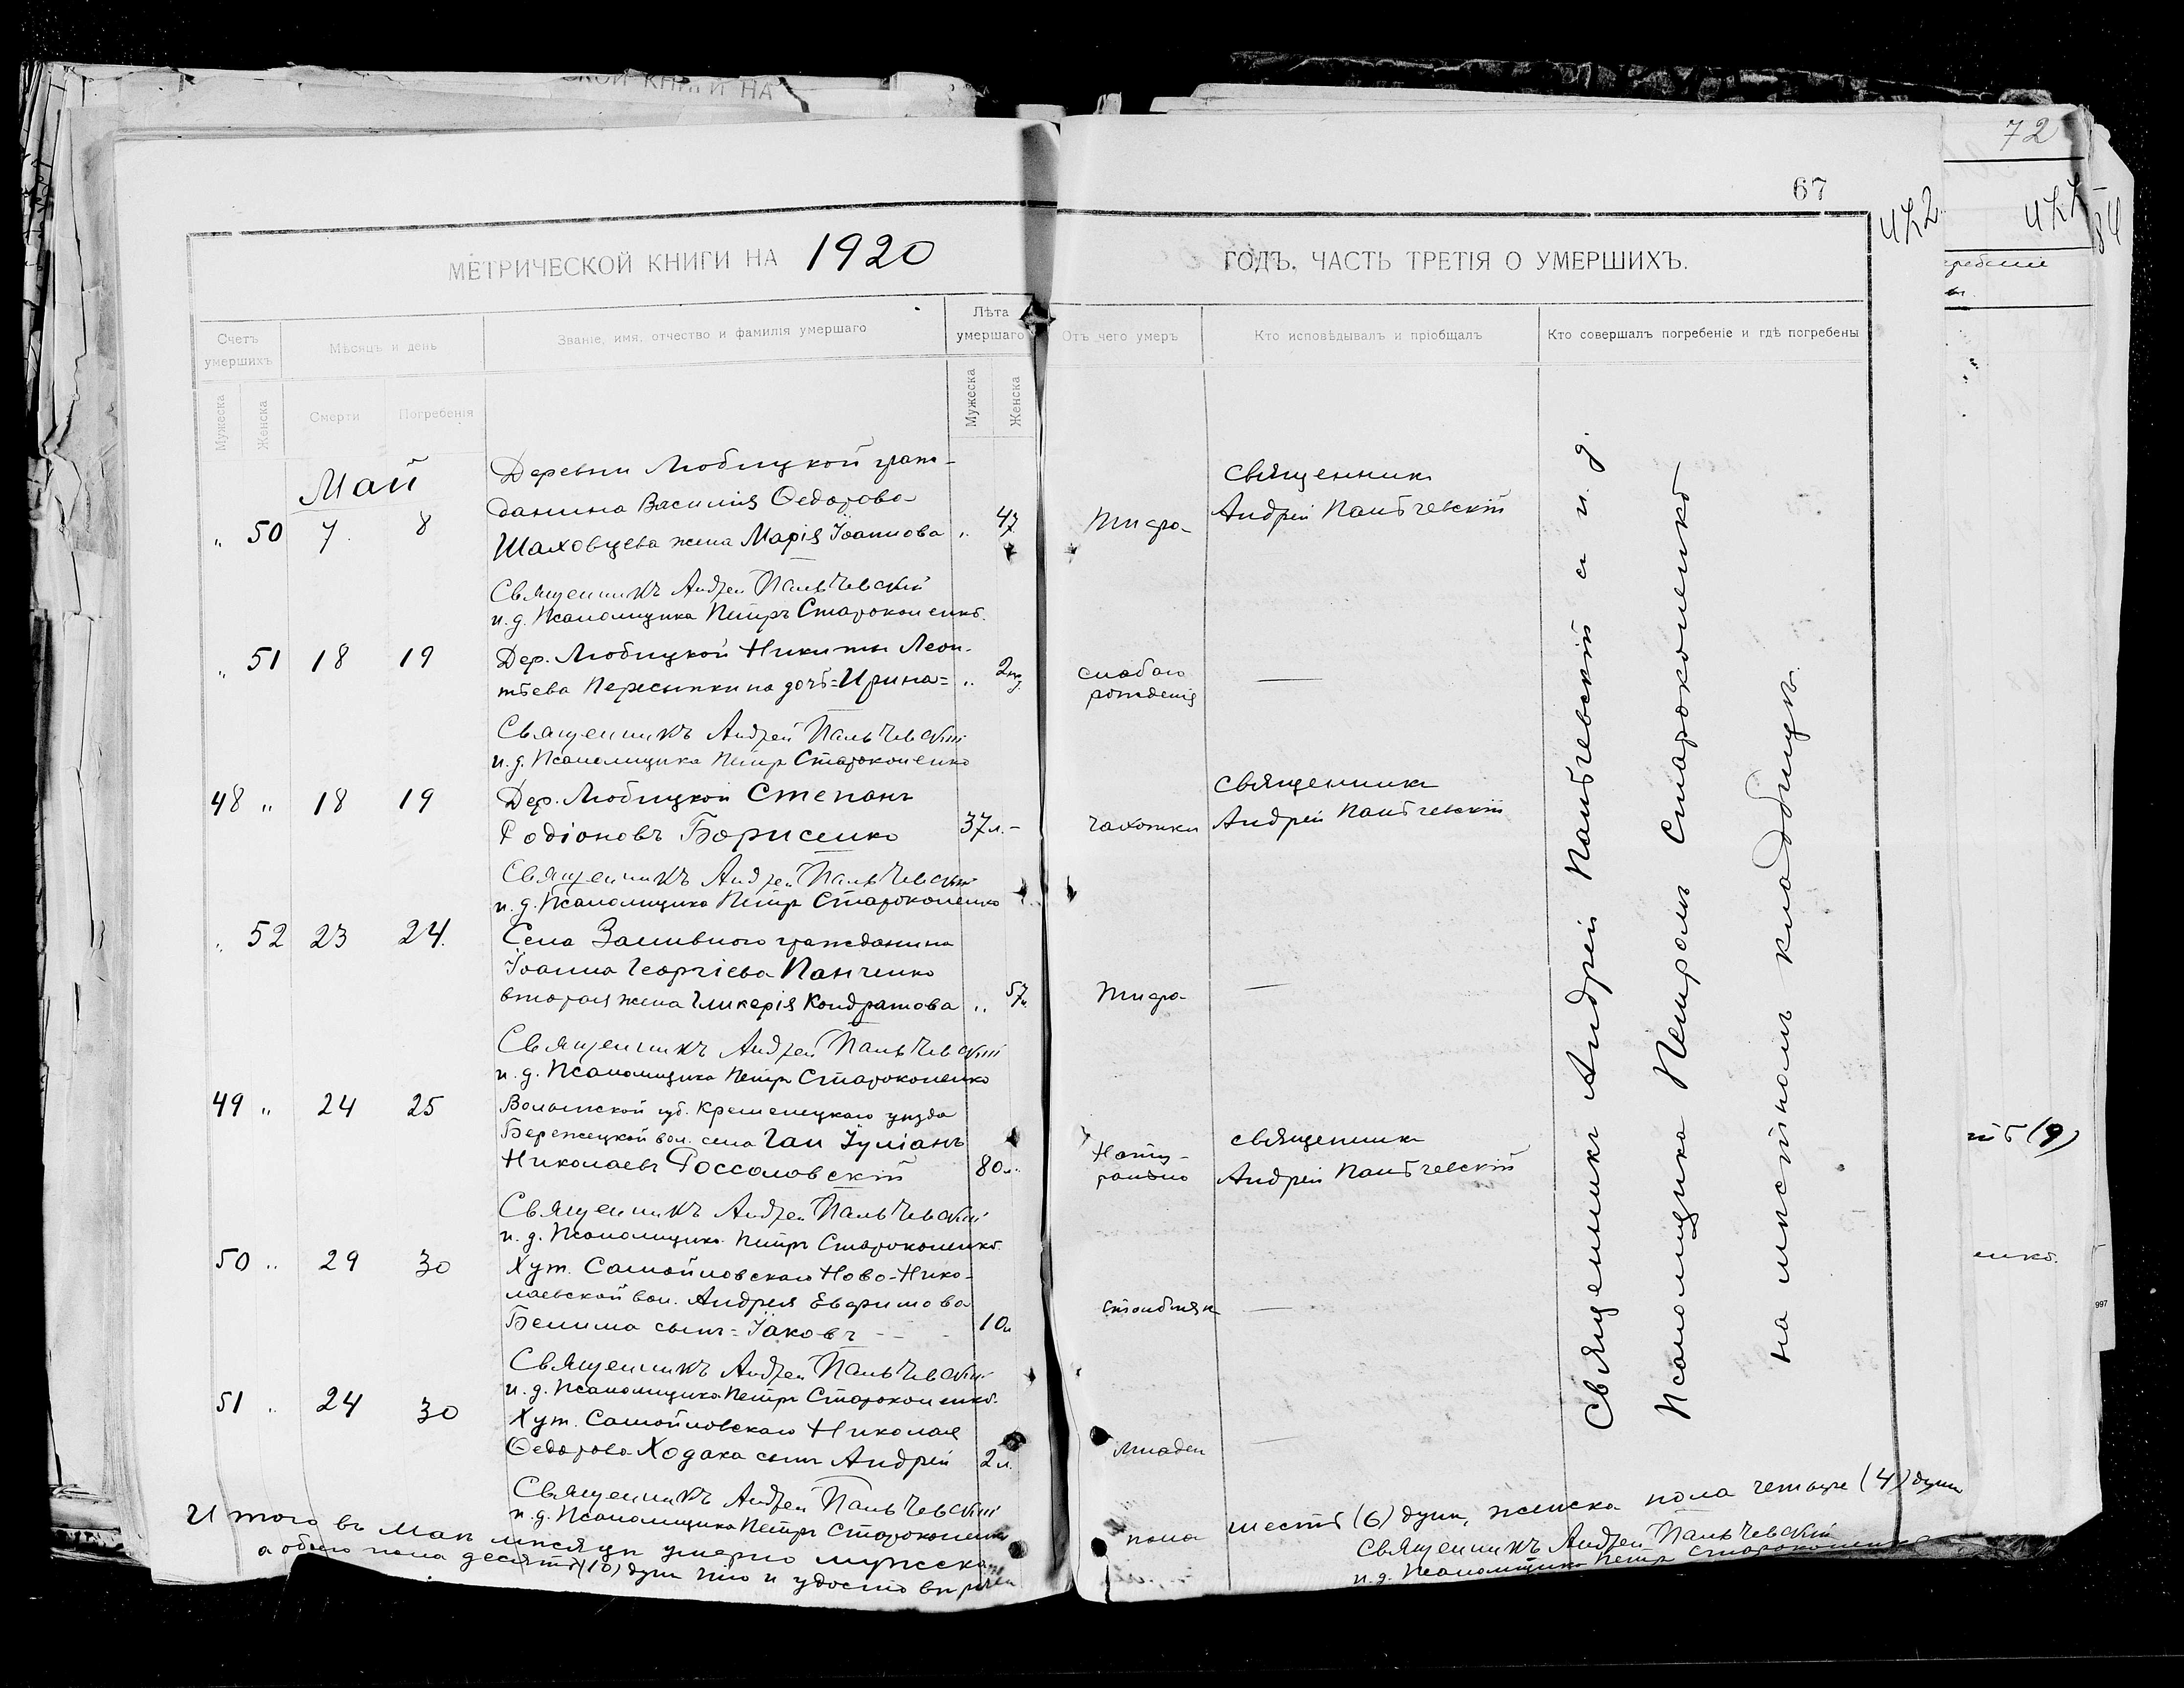 СКОЙ КНИГИ НА
72
67
472
МЕТРИЧЕСКОЙ КНИГИ НА 1920
ГОДЪ, ЧАСТЬ ТРЕТІЯ О УМЕРШИХЪ.
Счетъ умершихъ
Мѣсяцъ и день
Званіе, имя, отчество и фамилія умершаго
Лѣта умершаго
Отъ чего умеръ
Кто исповѣдывалъ и пріобщалъ
Кто совершалъ погребеніе и гдѣ погребены
Мужеска
Женска
Смерти
Погребенія
Мужеска
Женска
Май
Деревни Любицкой граж-
данина Василія Ѳедорова
„ 50 7 8 Шаховцева жена Марія Іоаннова „ 47 Тифа Священникъ
Андрей Пальчевскій
Священникъ Андрей Пальчевскій
и. д. Псаломщика Петръ Стороконенко.
„ 51 18 19 Дер. Любицкой Никиты Леон-
тьева Пересыпкина дочь=Ирина= „ слабаго
рожденія —
Священникъ Андрей Пальчевскій
и. д. Псаломщика Петръ Стороконенко
48 „ 18 19 Дер. Любицкой Степанъ
Родіоновъ Борисенко 37 л. – чахотки Священникъ
Андрей Пальчевскій
Священникъ Андрей Пальчевскій
и. д. Псаломщика Петръ Стороконенко
„ 52 23 24. Села Заливного гражданина
Іоанна Георгіева Панченко
вторая жена Гликерія Кондратова „ 57 Тифа —
Священникъ Андрей Пальчевскій
и. д. Псаломщика Петръ Стороконенко
49 „ 24 25 Волынской губ. Кременецкаго уѣзда
Бережецкой вол. села Гаи Іуліанъ
Николаевъ Россоловскій 80 л. Нату-
рально Священникъ
Андрей Пальчевскій
Священникъ Андрей Пальчевскій
и. д. Псаломщика Петръ Стороконенко.
50 „ 29 30 Хут. Самойловскаго Ново-Нико-
лаевской вол. Андрея Евфимова
Белима сынъ=Іаковъ 10 л. столбняк —
Священникъ Андрей Пальчевскій
и. д. Псаломщика Петръ Стороконенко.
51 „ 24 30 Хут. Самойловскаго Николая
Ѳедорова Ходака сынъ Андрей 2 л. младен —
Священникъ Андрей Пальчевскій
и. д. Псаломщика Петръ Стороконенко
Священникъ Андрей Пальчевскій с и. д.
Псаломщика Петромъ Стороконенко
на мѣстномъ кладбищѣ.
Итого въ Маѣ мѣсяцѣ умерло мужска пола шесть (6) душъ, женска пола четыре (4) души
а обоего пола десять (10) душъ что и удостовѣряемъ
Священникъ Андрей Пальчевскій
и. д. Псаломщика Петръ Стороконенко
997